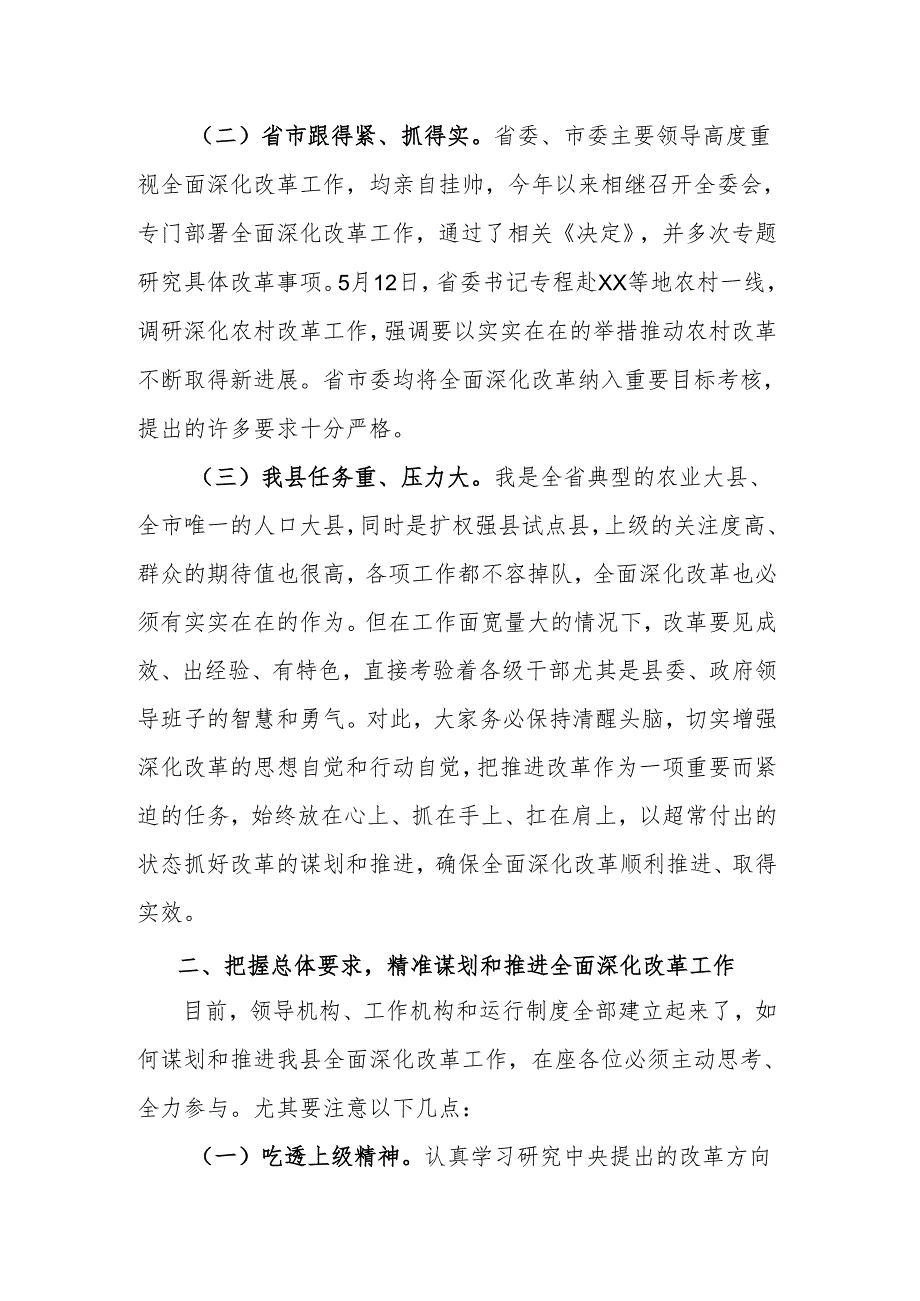 （二）省市跟得紧、抓得实。省委、市委主要领导高度重
视全面深化改革工作，均亲自挂帅，今年以来相继召开全委会，
专门部署全面深化改革工作，通过了相关《决定》，并多次专题
研究具体改革事项。5月12日，省委书记专程赴XX等地农村一线，
调研深化农村改革工作，强调要以实实在在的举措推动农村改革
不断取得新进展。省市委均将全面深化改革纳入重要目标考核，
提出的许多要求十分严格。
（三）我县任务重、压力大。我是全省典型的农业大县、
全市唯一的人口大县，同时是扩权强县试点县，上级的关注度高、
群众的期待值也很高，各项工作都不容掉队，全面深化改革也必
须有实实在在的作为。但在工作面宽量大的情况下，改革要见成
效、出经验、有特色，直接考验着各级干部尤其是县委、政府领
导班子的智慧和勇气。对此，大家务必保持清醒头脑，切实增强
深化改革的思想自觉和行动自觉，把推进改革作为一项重要而紧
迫的任务，始终放在心上、抓在手上、扛在肩上，以超常付出的
状态抓好改革的谋划和推进，确保全面深化改革顺利推进、取得
实效。
二、把握总体要求，精准谋划和推进全面深化改革工作
目前，领导机构、工作机构和运行制度全部建立起来了，如
何谋划和推进我县全面深化改革工作，在座各位必须主动思考、
全力参与。尤其要注意以下几点：
（一）吃透上级精神。认真学习研究中央提出的改革方向